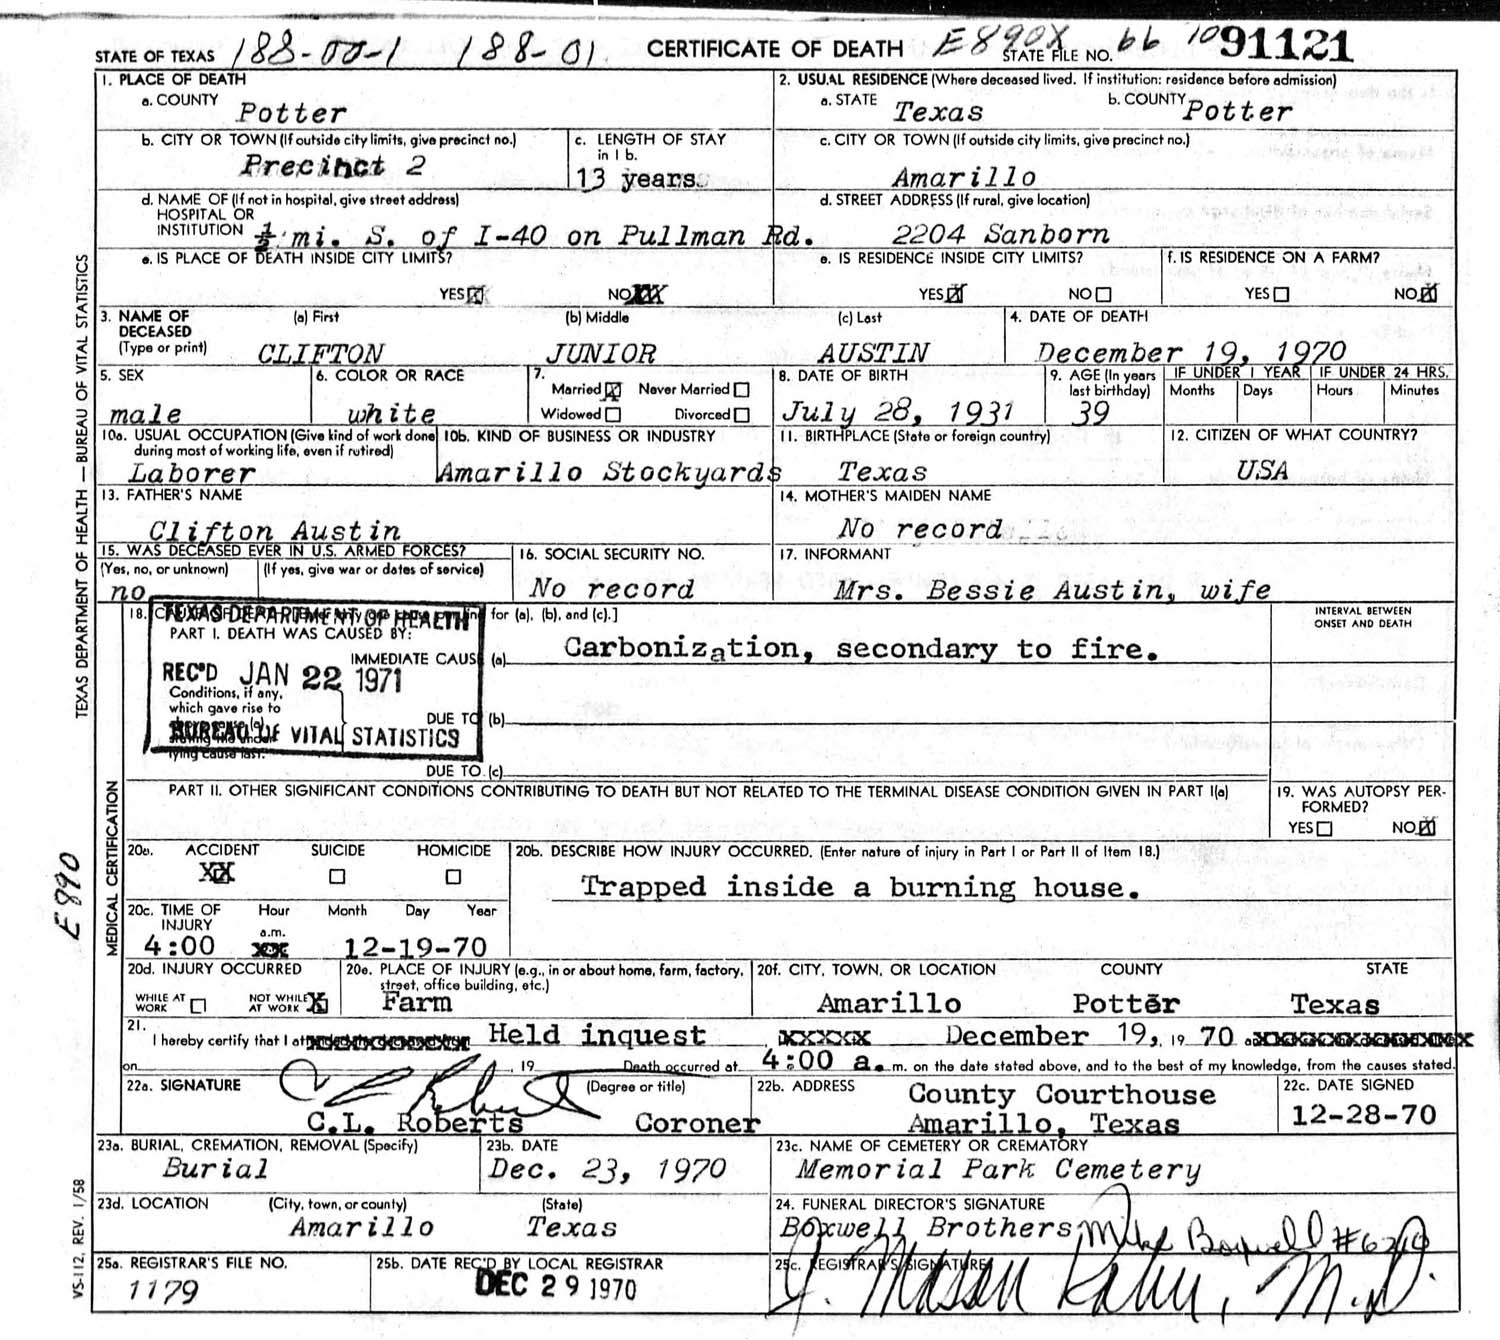 STATE OF TEXAS 188-00-1 188-01 CERTIFICATE OF DEATH E890X STATE FILE NO. 66 10 91121
1. PLACE OF DEATH
a. COUNTY Potter
2. USUAL RESIDENCE (Where deceased lived. If institution: residence before admission)
a. STATE Texas b. COUNTY Potter
b. CITY OR TOWN (If outside city limits, give precinct no.) Precinct 2
c. LENGTH OF STAY in 1 b. 13 years
c. CITY OR TOWN (If outside city limits, give precinct no.) Amarillo
d. NAME OF (If not in hospital, give street address) HOSPITAL OR INSTITUTION ½ mi. S. of I-40 on Pullman Rd.
d. STREET ADDRESS (If rural, give location) 2204 Sanborn
e. IS PLACE OF DEATH INSIDE CITY LIMITS? YES NO
e. IS RESIDENCE INSIDE CITY LIMITS? YES X NO
f. IS RESIDENCE ON A FARM? YES NO X
3. NAME OF DECEASED (Type or print)
(a) First CLIFTON (b) Middle JUNIOR (c) Last AUSTIN
4. DATE OF DEATH December 19, 1970
5. SEX male
6. COLOR OR RACE white
7. Married X Never Married Widowed Divorced
8. DATE OF BIRTH July 28, 1931
9. AGE (In years last birthday) 39
IF UNDER 1 YEAR Months Days IF UNDER 24 HRS. Hours Minutes
10a. USUAL OCCUPATION (Give kind of work done during most of working life, even if rutired) Laborer
10b. KIND OF BUSINESS OR INDUSTRY Amarillo Stockyards
11. BIRTHPLACE (State or foreign country) Texas
12. CITIZEN OF WHAT COUNTRY? USA
13. FATHER'S NAME Clifton Austin
14. MOTHER'S MAIDEN NAME No record
15. WAS DECEASED EVER IN U.S. ARMED FORCES? (Yes, no, or unknown) (If yes, give war or dates of service) no
16. SOCIAL SECURITY NO. No record
17. INFORMANT Mrs. Bessie Austin, wife
18. for (a), (b), and (c).]
TEXAS DEPARTMENT OF HEALTH
PART I. DEATH WAS CAUSED BY:
IMMEDIATE CAUSE (a) Carbonization, secondary to fire.
INTERVAL BETWEEN ONSET AND DEATH
REC'D JAN 22 1971
Conditions, if any, which gave rise to
DUE TO (b)
BUREAU OF VITAL STATISTICS
lying cause last.
DUE TO (c)
PART II. OTHER SIGNIFICANT CONDITIONS CONTRIBUTING TO DEATH BUT NOT RELATED TO THE TERMINAL DISEASE CONDITION GIVEN IN PART I(a)
19. WAS AUTOPSY PERFORMED? YES NO X
20a. ACCIDENT XX SUICIDE HOMICIDE
20b. DESCRIBE HOW INJURY OCCURRED. (Enter nature of injury in Part I or Part II of Item 18.)
Trapped inside a burning house.
20c. TIME OF INJURY Hour Month Day Year
4:00 a.m. 12-19-70
20d. INJURY OCCURRED WHILE AT WORK NOT WHILE AT WORK X
20e. PLACE OF INJURY (e.g., in or about home, farm, factory, street, office building, etc.) Farm
20f. CITY, TOWN, OR LOCATION COUNTY STATE
Amarillo Potter Texas
21. I hereby certify that I Held inquest xxxxx December 19, 19 70
on , 19 Death occurred at 4:00 a. m. on the date stated above, and to the best of my knowledge, from the causes stated.
22a. SIGNATURE (Degree or title)
C.L. Roberts Coroner
22b. ADDRESS County Courthouse
Amarillo, Texas
22c. DATE SIGNED 12-28-70
23a. BURIAL, CREMATION, REMOVAL (Specify) Burial
23b. DATE Dec. 23, 1970
23c. NAME OF CEMETERY OR CREMATORY Memorial Park Cemetery
23d. LOCATION (City, town, or county) (State)
Amarillo Texas
24. FUNERAL DIRECTOR'S SIGNATURE
Boxwell Brothers Mike Boxwell
25a. REGISTRAR'S FILE NO. 1179
25b. DATE REC'D BY LOCAL REGISTRAR DEC 29 1970
25c. REGISTRAR'S SIGNATURE
J. Mason Kahn, M.D.
TEXAS DEPARTMENT OF HEALTH — BUREAU OF VITAL STATISTICS
MEDICAL CERTIFICATION
E890
VS-112, REV. 1/58